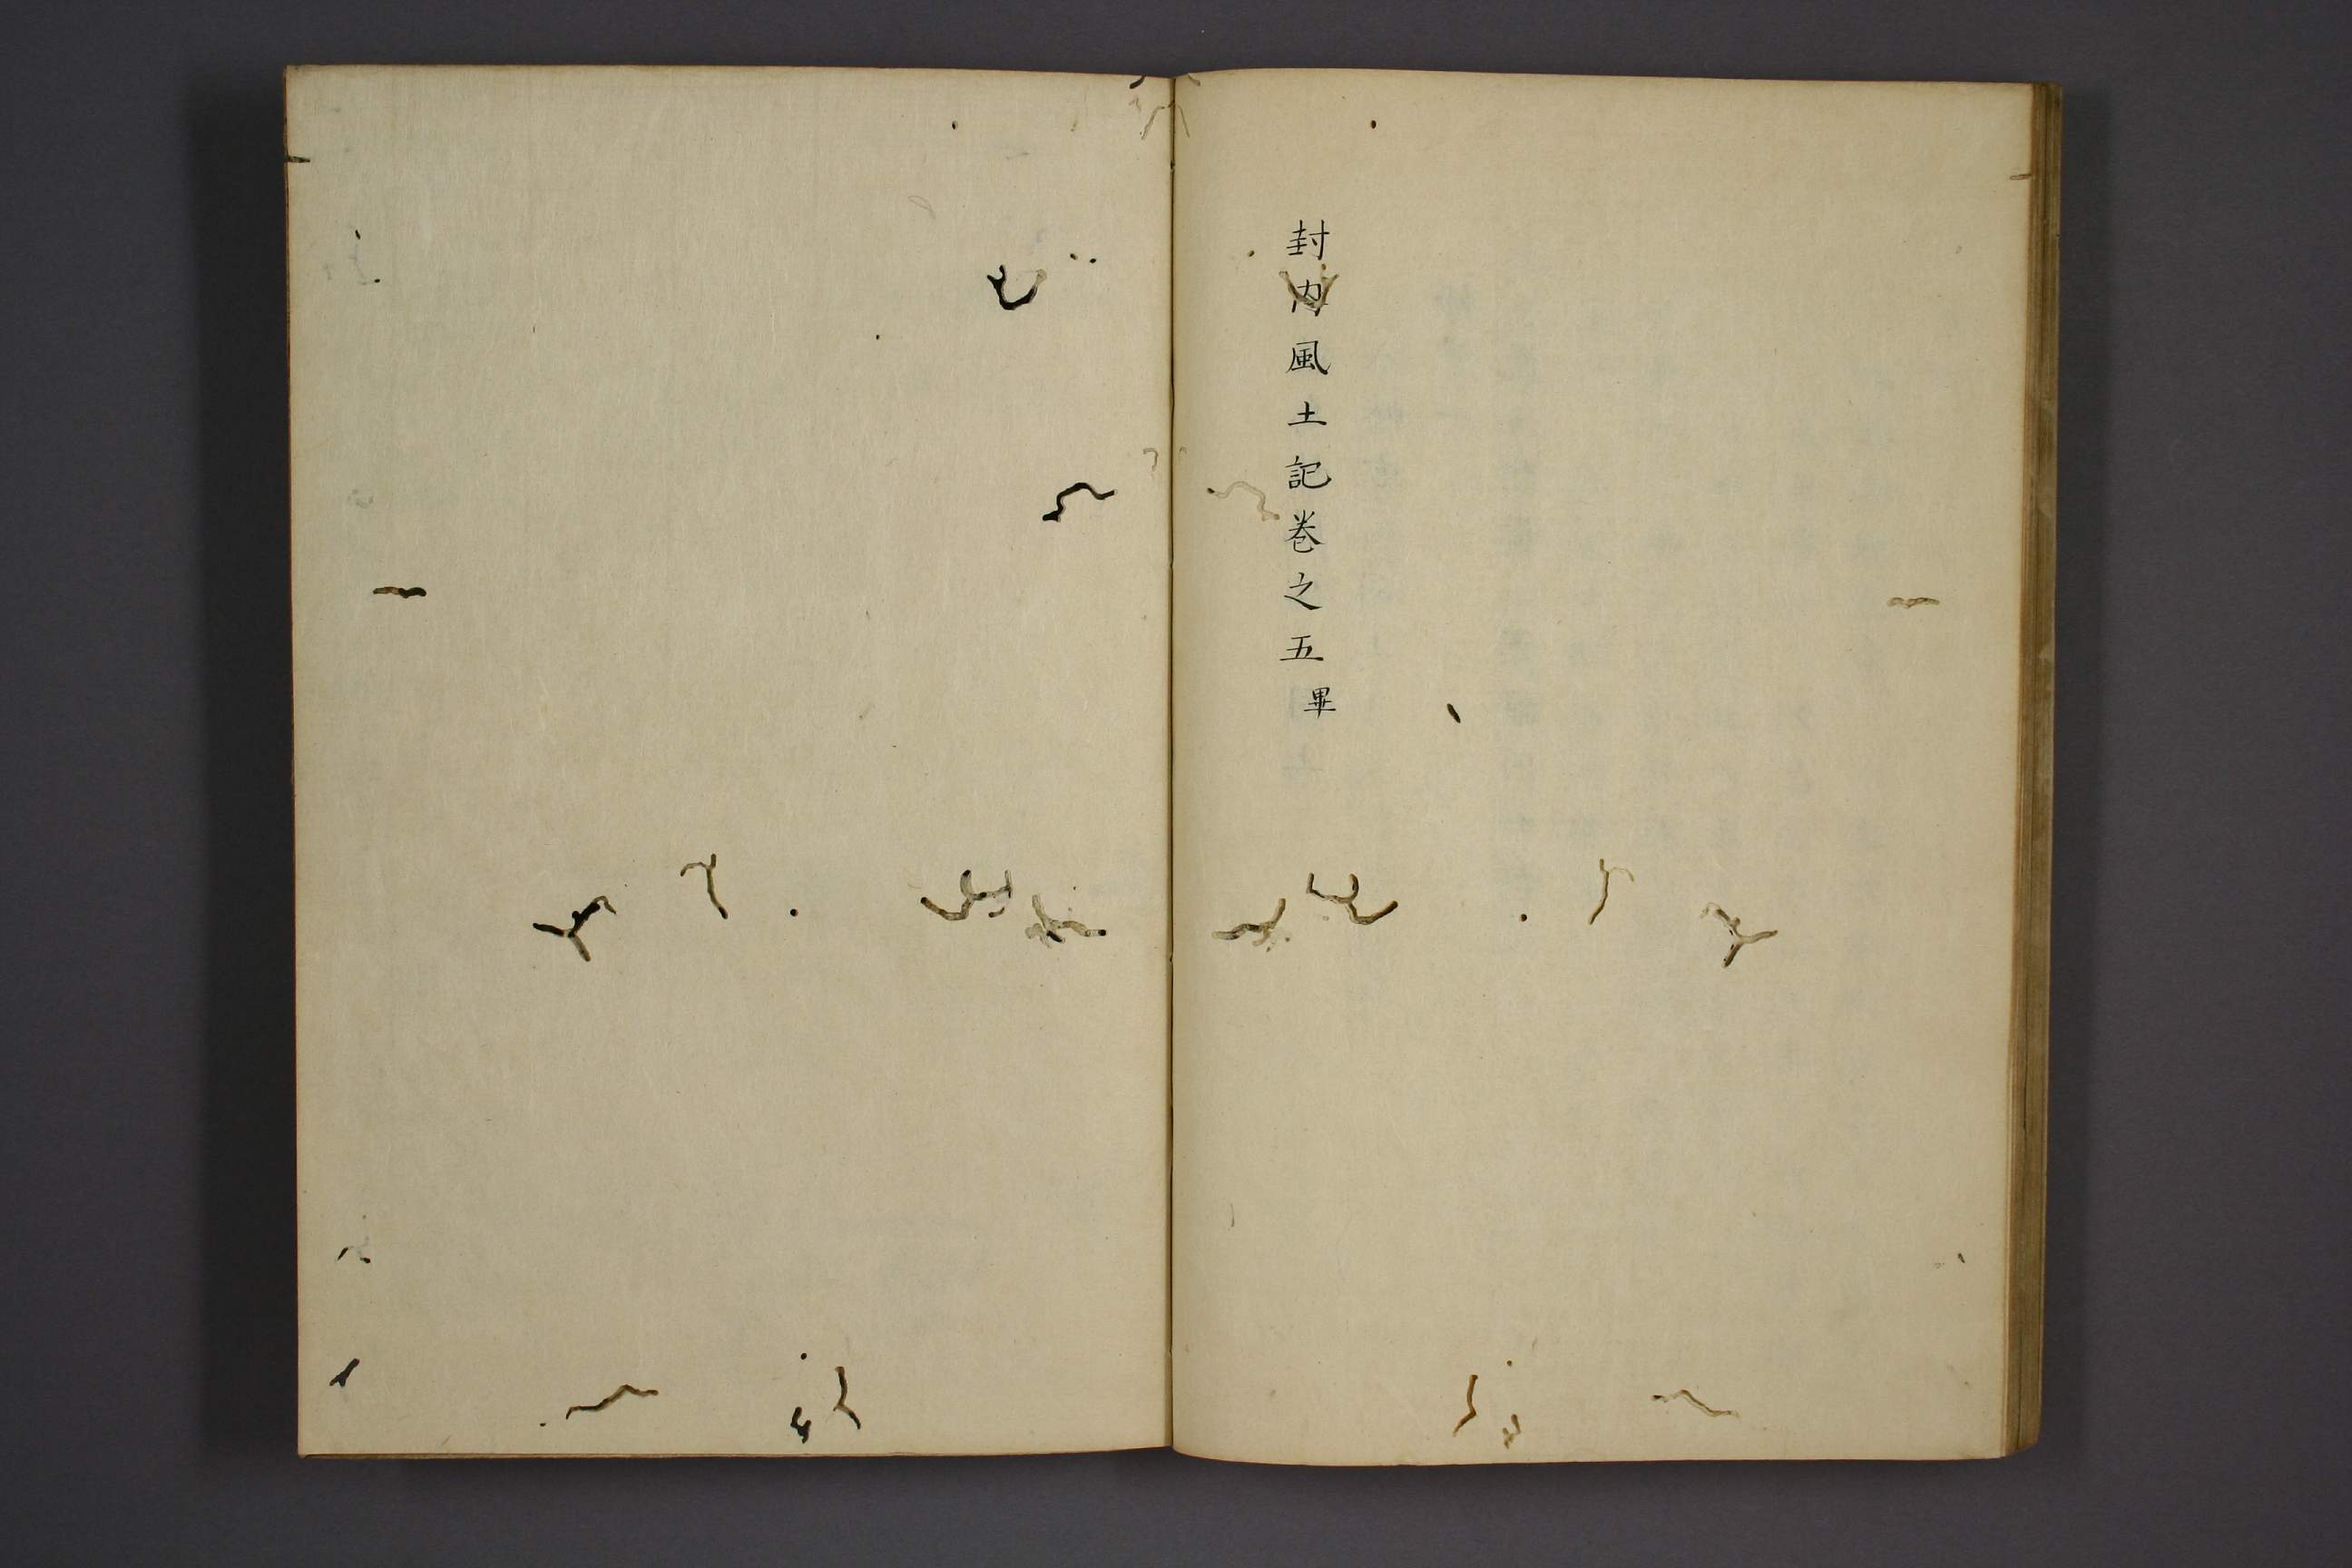 封内風土記巻之五畢